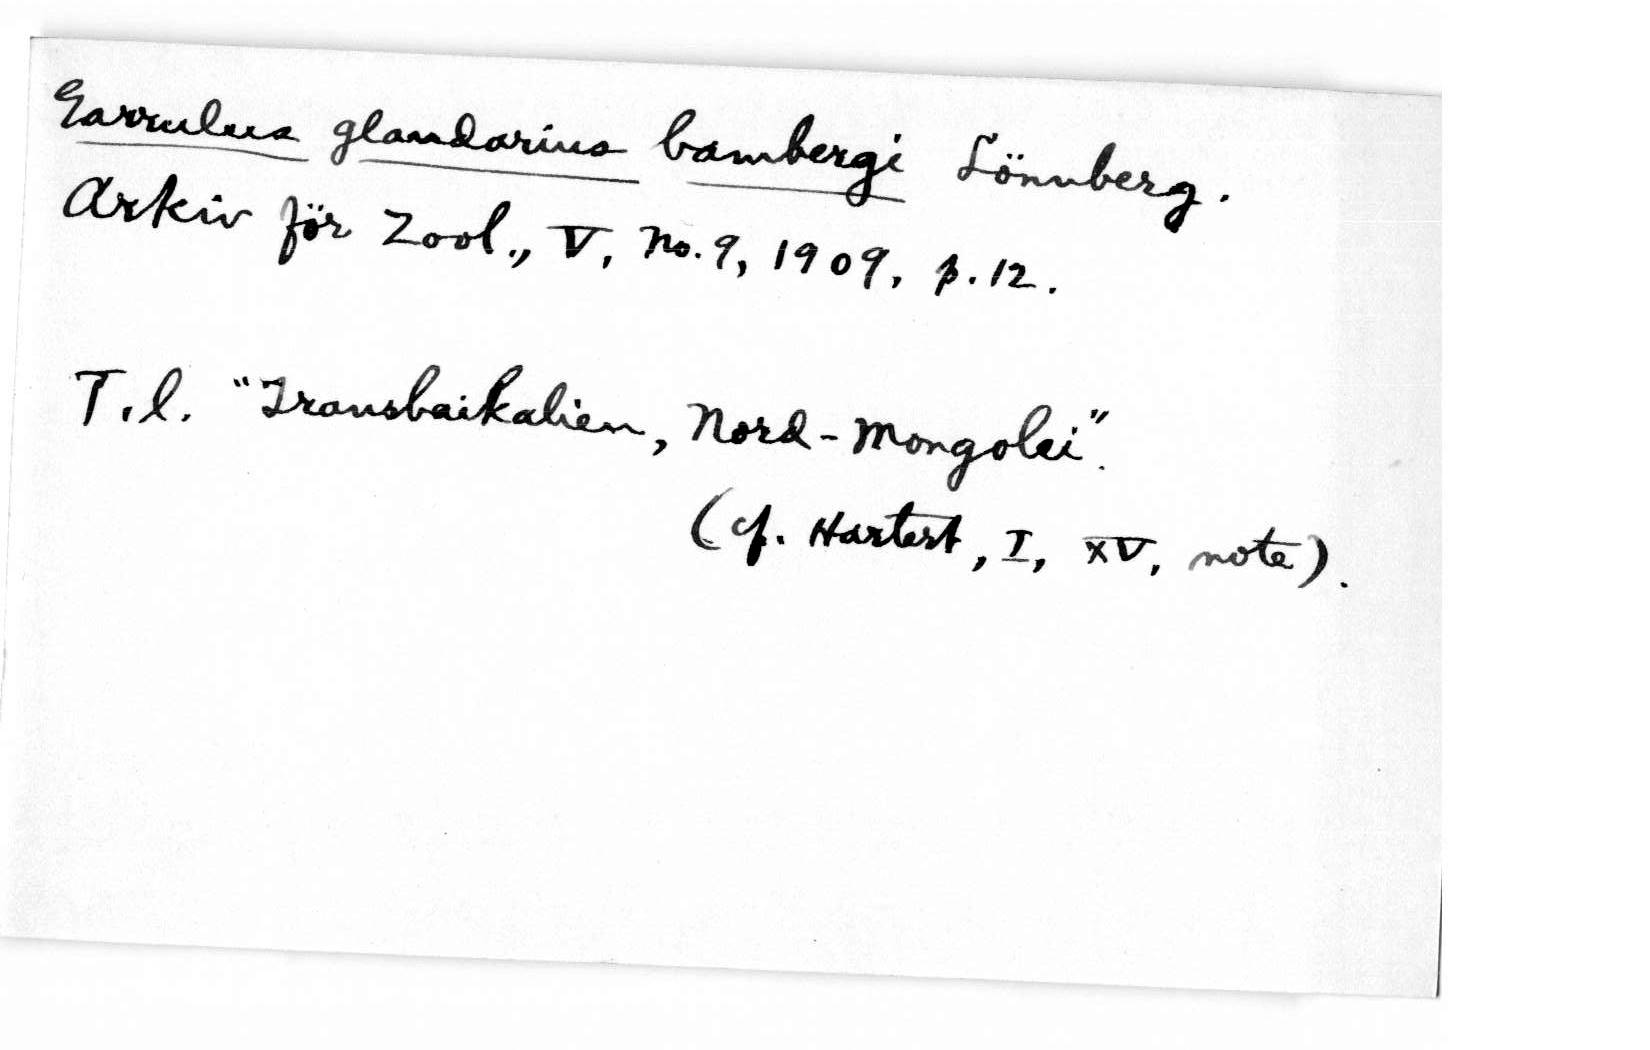 Garrulus glandarius bambergi Lönnberg.
Arkiv för Zool., V, No. 9, 1909, p. 12.
T. l. "Transbaikalien, Nord-Mongolei".
(cf. Hartert, I, XV, note).